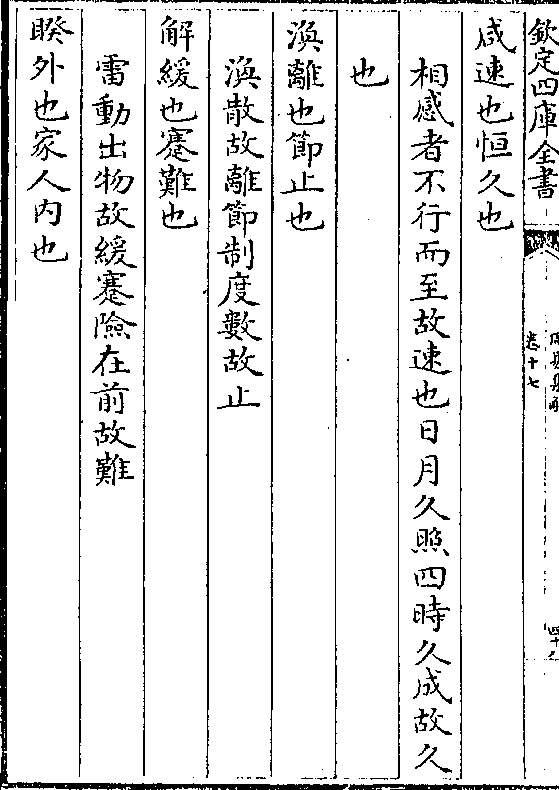 欽定四庫全書
卷十七
咸速也恒久也
相感者不行而至故速也日月久照四時久成故久
也
渙離也節止也
渙散故離節制度數故止
解緩也蹇難也
雷動出物故緩蹇險在前故難
睽外也家人内也